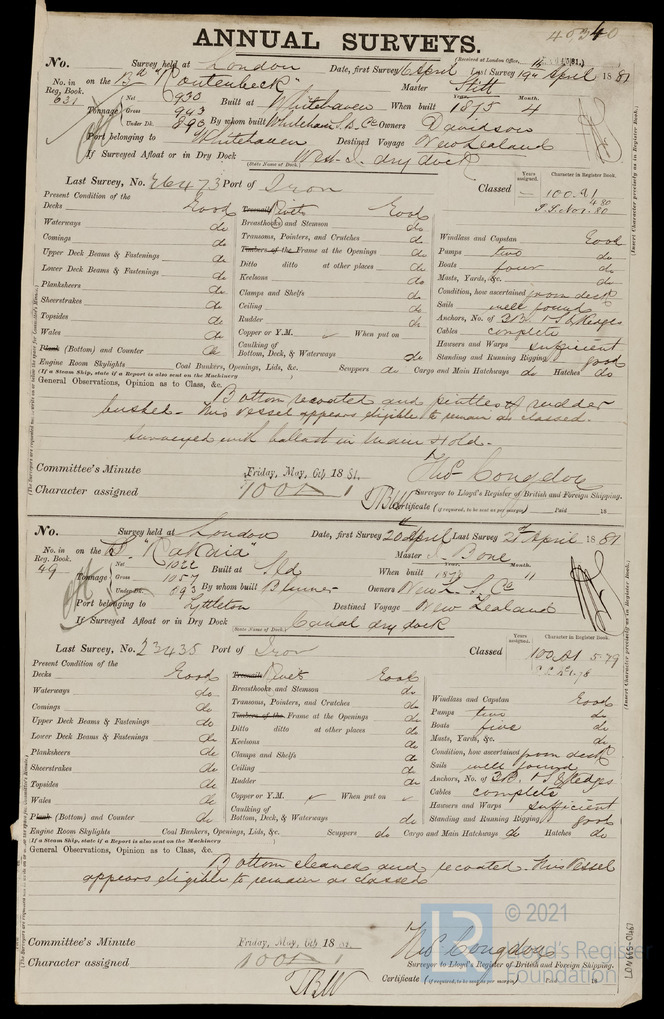 40340
ANNUAL SURVEYS.
(Received at London Office,
No. Survey held at London Date, first Survey 16 April Last Survey 19th April 1881
No. in Reg. Book. on the Bk "Routenbeck" Master Stitt
631 Tonnage Net 930 Built at Whitehaven When built 1875 Month. 4
Gross 943
Under Dk. 890 By whom built Whitehavn S.B. Co Owners Davidson
Port belonging to Whitehaven Destined Voyage New Zealand
If Surveyed Afloat or in Dry Dock West I dry dock
(State Name of Dock.)
Last Survey, No. 26473 Port of Iron Classed 100 A1
Years assigned. Character in Register Book.
Present Condition of the
Decks Good
Waterways do
Comings do
Upper Deck Beams & Fastenings do
Lower Deck Beams & Fastenings do
Planksheers do
Sheerstrakes do
Topsides do
Wales do
Plank (Bottom) and Counter do
Treenails Rivets Good
Breasthooks and Stemson do
Transoms, Pointers, and Crutches do
Timbers of the Frame at the Openings do
Ditto ditto at other places do
Keelsons do
Clamps and Shelfs do
Ceiling do
Rudder do
Copper or Y.M. ✓ When put on ✓
Caulking of
Bottom, Deck, & Waterways do
Windlass and Capstan Good
Pumps two do
Boats four do
Masts, Yards, &c. do
Condition, how ascertained from deck
Sails well found
Anchors, No. of 3B. 1 S. 2 Kedges
Cables complete
Hawsers and Warps sufficient
Standing and Running Rigging good
Engine Room Skylights Coal Bunkers, Openings, Lids, &c. Scuppers do Cargo and Main Hatchways do Hatches do
(If a Steam Ship, state if a Report is also sent on the Machinery
General Observations, Opinion as to Class, &c.
Bottom recoated and pintles of rudder
bushed. This vessel appears eligible to remain as classed.
Surveyed with ballast in Main Hold.
Committee's Minute Friday, May, 6th 1881.
Character assigned 100 A 1
Thos Congdon
Surveyor to Lloyd's Register of British and Foreign Shipping.
TBW Certificate (if required, to be sent as per margin) Paid 18
No. Survey held at London Date, first Survey 20 April Last Survey 21st April 1881
No. in Reg. Book. on the S. "Rakaia" Master J. Bone
49 Tonnage Net 1022 Built at Sld When built Month. 11
Gross 1057
Under Dk. 993 By whom built Blumer Owners New Z. S. Co
Port belonging to Lyttleton Destined Voyage New Zealand
If Surveyed Afloat or in Dry Dock Canal dry dock
(State Name of Dock.)
Last Survey, No. 23435 Port of Iron Classed 100 A1 5.79
Years assigned. Character in Register Book.
Present Condition of the
Decks Good
Waterways do
Comings do
Upper Deck Beams & Fastenings do
Lower Deck Beams & Fastenings do
Planksheers do
Sheerstrakes do
Topsides do
Wales do
Plank (Bottom) and Counter do
Treenails Rivets Good
Breasthooks and Stemson do
Transoms, Pointers, and Crutches do
Timbers of the Frame at the Openings do
Ditto ditto at other places do
Keelsons do
Clamps and Shelfs do
Ceiling do
Rudder do
Copper or Y.M. ✓ When put on ✓
Caulking of
Bottom, Deck, & Waterways do
Windlass and Capstan Good
Pumps two do
Boats five do
Masts, Yards, &c. do
Condition, how ascertained from deck
Sails well found
Anchors, No. of 3B. 1 S. 2 Kedges
Cables complete
Hawsers and Warps sufficient
Standing and Running Rigging good
Engine Room Skylights Coal Bunkers, Openings, Lids, &c. Scuppers do Cargo and Main Hatchways do Hatches do
(If a Steam Ship, state if a Report is also sent on the Machinery
General Observations, Opinion as to Class, &c.
Bottom cleaned and recoated. This vessel
appears eligible to remain as classed
Committee's Minute Friday, May, 6th 1881.
Character assigned 100 A 1
Thos Congdon
Surveyor to Lloyd's Register of British and Foreign Shipping.
TBW Certificate (if required, to be sent as per margin) Paid 18
(Insert Character precisely as in Register Book.)
(Insert Character precisely as in Register Book.)
LR © 2021
Lloyd's Register
Foundation